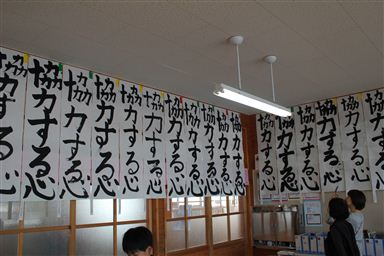 協力する心
協力する心
協力する心
協力する心
協力する心
協力する心
協力する心
協力する心
協力する心
協力する心
協力する心
協力する心
協力する心
協力する心
協力する心
協力する心
協力する心